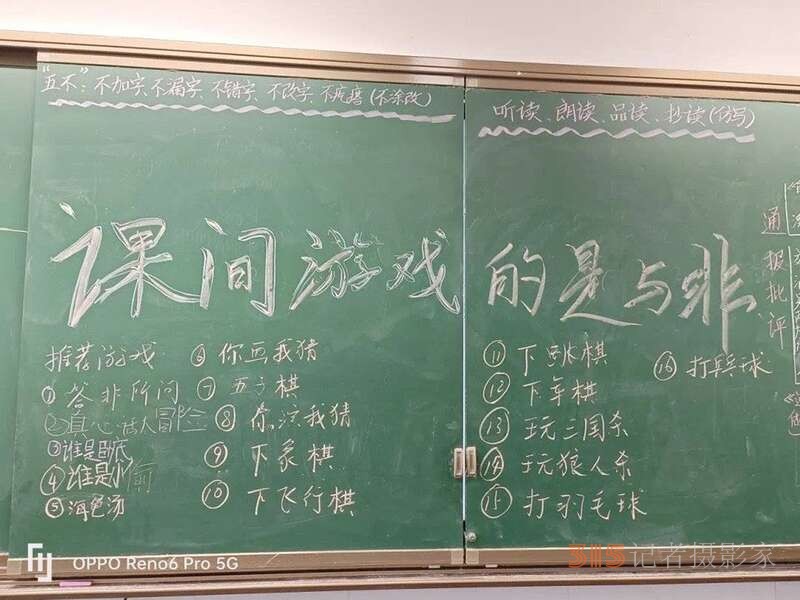 "五不"：不加字、不漏字、不错字、不改字、不疙瘩(不涂改)
听读、朗读、品读、抄读(仿写)
课间游戏的是与非
推荐游戏
①答非所问
②真心话大冒险
③谁是卧底
④谁是小偷
⑤海龟汤
⑥你画我猜
⑦五子棋
⑧你演我猜
⑨下象棋
⑩下飞行棋
⑪下跳棋
⑫下军棋
⑬玩三国杀
⑭玩狼人杀
⑮打羽毛球
⑯打乒乓球
通报批评
OPPO Reno6 Pro 5G
315记者摄影家